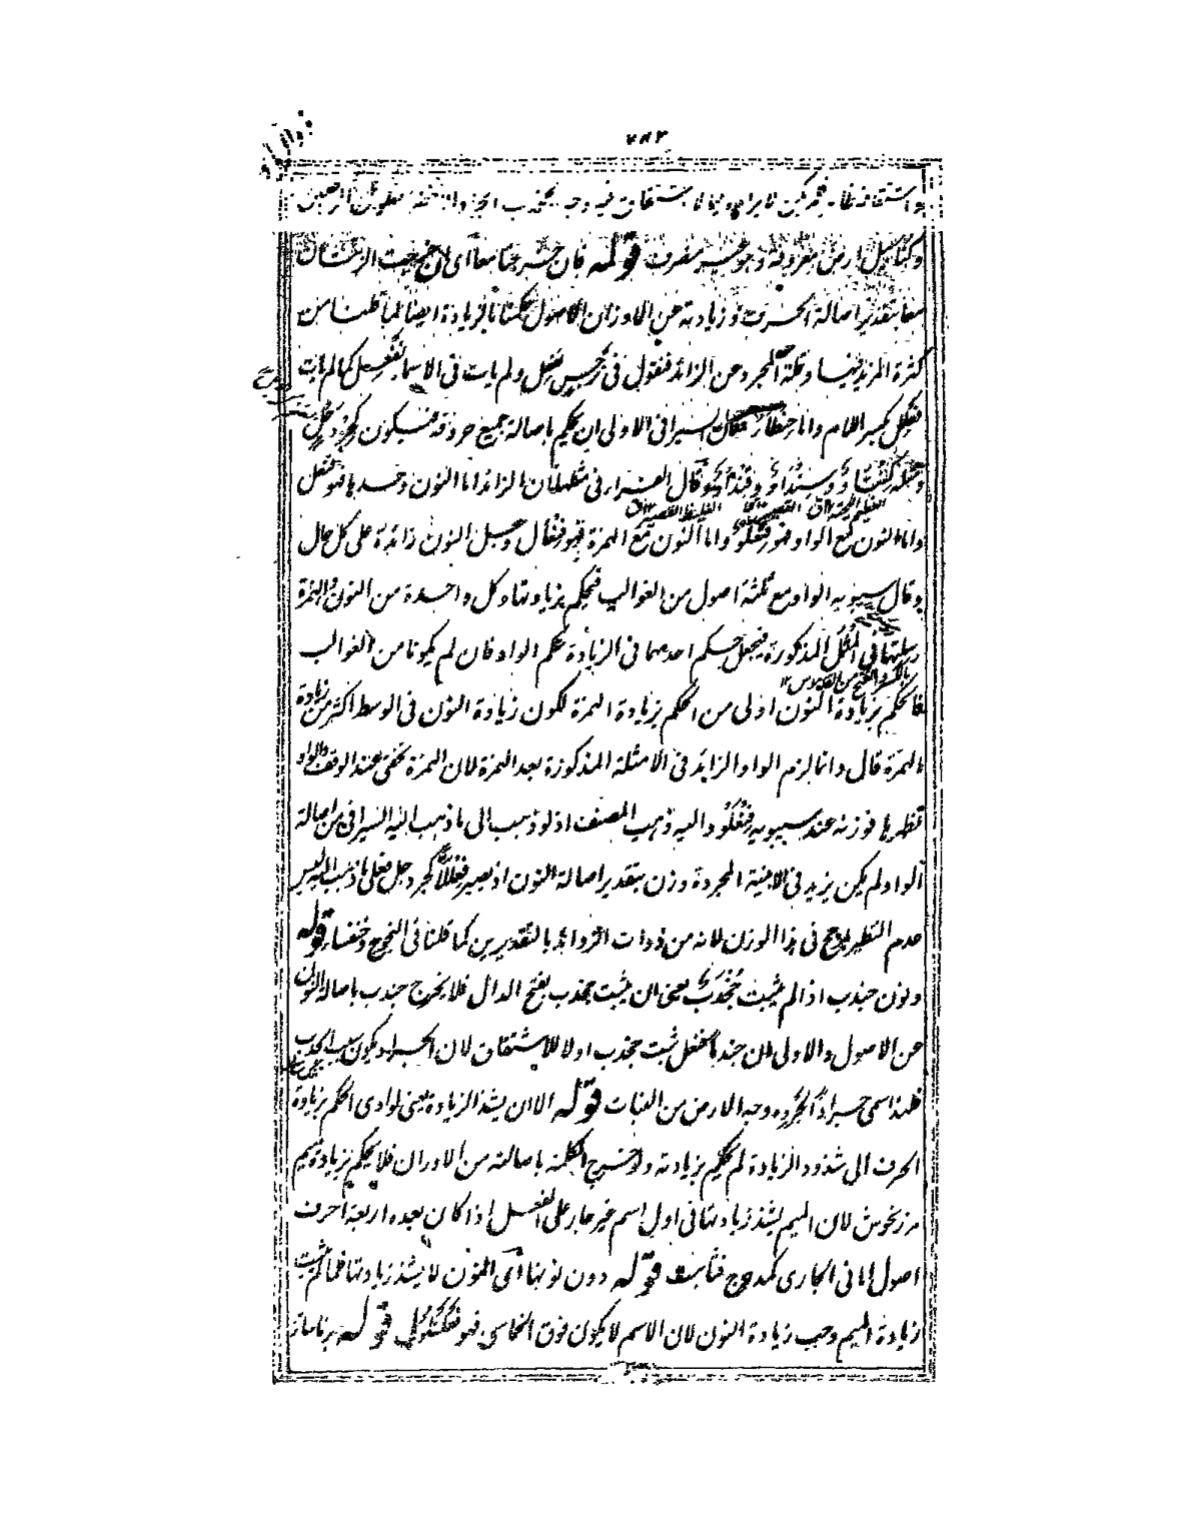 ٢٨٣
وكنابيل ارض معروفة وهو غير منصرف قوله فان خرجتا معا اى ان خرجت الزنتان
معا بتقدير اصالة الحرف وزيادته عن الاوزان الاصول حكمنا بالزيادة ايضا لما قلنا من
كثرة المزيد فيها وقلة المجرد عن الزائد فنقول فى نرجس نفعل ولم يات فى الاسما نفعل كما لم يات
فعلل بكسر اللام واما حنطأو فقال السيرافى الاولى ان يحكم باصالة جميع حروفه فيكون كجردحل
ومثله كنثأو وسندأو وقندأو وقال الفراء فى مثلها ان الزائد اما النون وحدها فهو فنعل
واما النون مع الواو فهو فنعلو واما النون مع الهمزة فهو فنعأل وجعل النون زائدة على كل حال
وقال سيبويه الواو مع ثلثة اصول من الغوالب فيحكم بزيادتها وكل واحدة من النون والهمزة
رسيلتها فى المثل المذكورة فيجعل حكم احدهما فى الزيادة حكم الواو فان لم يكونا من الغوالب
فالحكم بزيادة النون اولى من الحكم بزيادة الهمزة لكون زيادة النون فى الوسط اكثر من زيادة
الهمزة قال وانما لزم الواو الزائد فى الامثلة المذكورة بعد الهمزة لان الهمزة تخفى عند الوقف والواو
تظهرها فوزنه عند سيبويه فنعلو واليه ذهب المصنف اذ لو ذهب الى ما ذهب اليه السيرافى من اصالة
الواو لم يكن يزيد فى الابنية المجردة وزن بتقدير اصالة النون اذ يصير فعللا كجردحل فعلى ما ذهب اليه ليس
عدم النظير مرجح فى هذا الوزن لانه من ذوات الزوائد بالتقديرين كما قلنا فى النجوج وخنفساء قوله
ونون جندب اذا لم يثبت جخدب يعنى ان يثبت جخدب بفتح الدال فلا يخرج جندب باصالة النون
عن الاصول والاولى ان جندبا فنعل ثبت جخدب او لا للاشتقاق لان الجراد يكون سبب الجدب
فلهذا سمى جرادا لجرده وجه الارض من النبات قوله الا ان يشذ الزيادة يعنى لو ادى الحكم بزيادة
الحرف الى شذوذ الزيادة لم يحكم بزيادته ولو خرج الكلمة باصالته من الاوزان فلا يحكم بزيادة ميم
مرزنجوش لان الميم يشذ زيادتها فى اول اسم غير جار على الفعل اذا كان بعده اربعة احرف
اصول اما فى الجارى كمدحرج فثابت قوله دون نونها اى النون لا يشذ زيادتها فلما لم يثبت
زيادة الميم وجب زيادة النون لان الاسم لا يكون فوق الخماسى فهو فعلنلول قوله برناساء